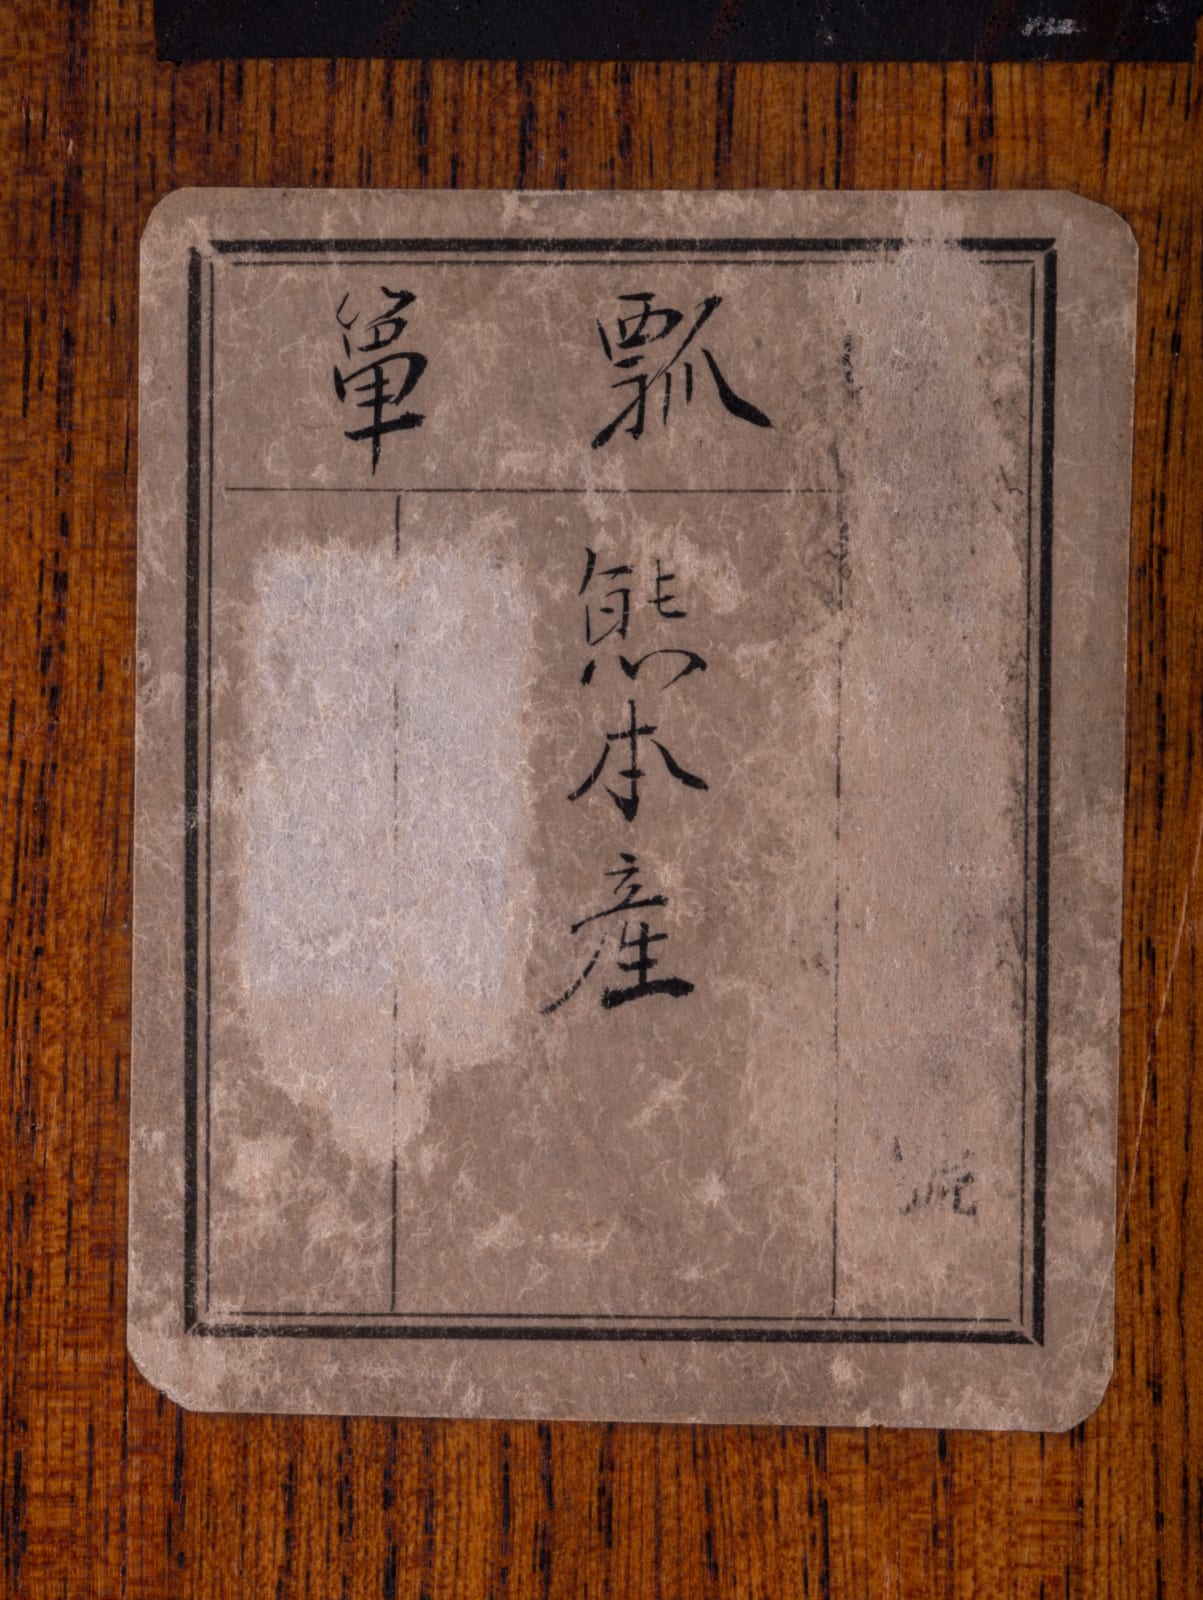 瓢箪
熊本産